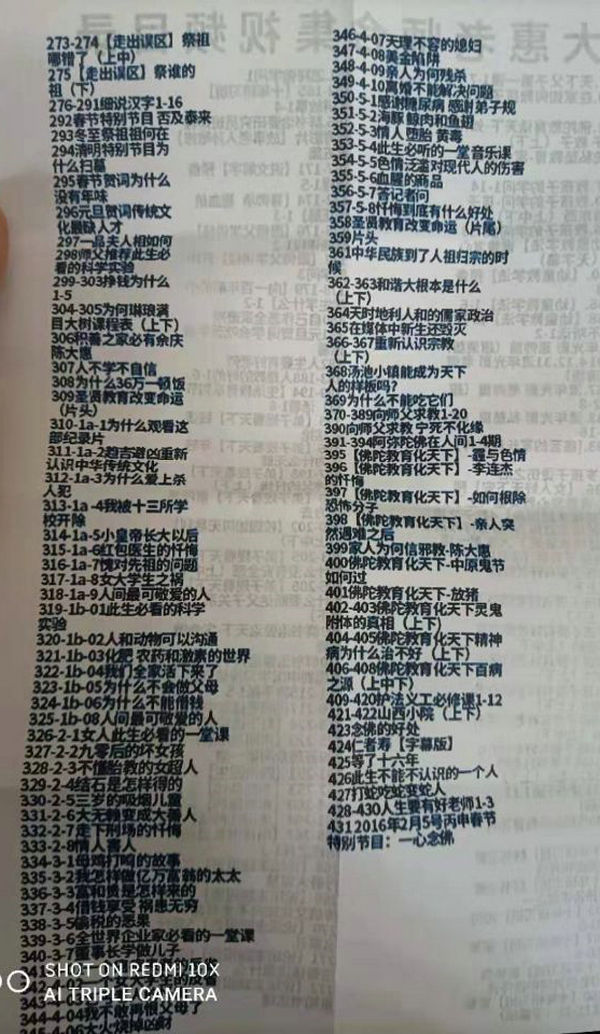 273-274【走出误区】祭祖
哪错了（上中）
275【走出误区】祭谁的
祖（下）
276-291细说汉字1-16
292春节特别节目 否及泰来
293冬至祭祖祖何在
294清明特别节目为
什么扫墓
295春节贺词为什么
没有年味
296元旦贺词传统文
化最缺人才
297一品夫人相如何
298师父推荐此生必
看的科学实验
299-303挣钱为什么
1-5
304-305为何琳琅满
目大树课程表（上下）
306积善之家必有余庆
陈大惠
307人不学不自信
308为什么36万一顿饭
309圣贤教育改变命运
（片头）
310-1a-1为什么观看这
部纪录片
311-1a-2趋吉避凶重新
认识中华传统文化
312-1a-3为什么爱上杀
人犯
313-1a-4我被十三所学
校开除
314-1a-5小皇帝长大以后
315-1a-6红包医生的忏悔
316-1a-7愧对先祖的问题
317-1a-8女大学生之祸
318-1a-9人间最可敬爱的人
319-1b-01此生必看的科学
实验
320-1b-02人和动物可以沟通
321-1b-03化肥 农药和激素的世界
322-1b-04我们全家活下来了
323-1b-05为什么不会做父母
324-1b-06为什么不能借钱
325-1b-08人间最可敬爱的人
326-2-1女人此生必看的一堂课
327-2-2九零后的坏女孩
328-2-3不懂胎教的女超人
329-2-4结石是怎样得的
330-2-5三岁的吸烟儿童
331-2-6大无赖变成大善人
332-2-7走下刑场的忏悔
333-2-8情人害人
334-3-1母鸡打鸣的故事
335-3-2我怎样做亿万富翁的太太
336-3-3富和贵是怎样来的
337-3-4借钱享受 祸患无穷
338-3-5偷税的恶果
339-3-6全世界企业家必看的一堂课
340-3-7董事长学做儿子
344-4-04我不敢再恨父母了
346-4-07天理不容的媳妇
347-4-08美金陷阱
348-4-09亲人为何残杀
349-4-10离婚不能解决问题
350-5-1感谢糖尿病 感谢弟子规
351-5-2海豚 鲸肉和鱼翅
352-5-3情人 堕胎 黄毒
353-5-4此生必听的一堂音乐课
354-5-5色情泛滥对现代人的伤害
355-5-6血腥的商品
356-5-7答记者问
357-5-8忏悔到底有什么好处
358圣贤教育改变命运（片尾）
359片头
361中华民族到了人祖归宗的时
候
362-363和谐大根本是什么
（上下）
364天时地利人和的儒家政治
365在媒体中新生还毁灭
366-367重新认识宗教
（上下）
368汤池小镇能成为天下
人的样板吗?
369为什么不能吃它们
370-389向师父求教1-20
390向师父求教 宁死不化缘
391-394阿弥陀佛在人间1-4期
395【佛陀教育化天下】-霾与色情
396【佛陀教育化天下】-李连杰
的忏悔
397【佛陀教育化天下】-如何根除
恐怖分子
398【佛陀教育化天下】-亲人突
然遇难之后
399家人为何信邪教-陈大惠
400佛陀教育化天下-中原鬼节
如何过
401佛陀教育化天下-放猪
402-403佛陀教育化天下灵鬼
附体的真相（上下）
404-405佛陀教育化天下精神
病为什么治不好（上下）
406-408佛陀教育化天下百病
之源（上中下）
409-420护法义工必修课1-12
421-422山西小院（上下）
423念佛的好处
424仁者寿【字幕版】
425等了十六年
426此生不能不认识的一个人
427打蛇吃蛇变蛇人
428-430人生要有好老师1-3
431 2016年2月5号丙申春节
特别节目：一心念佛
SHOT ON REDMI 10X
AI TRIPLE CAMERA